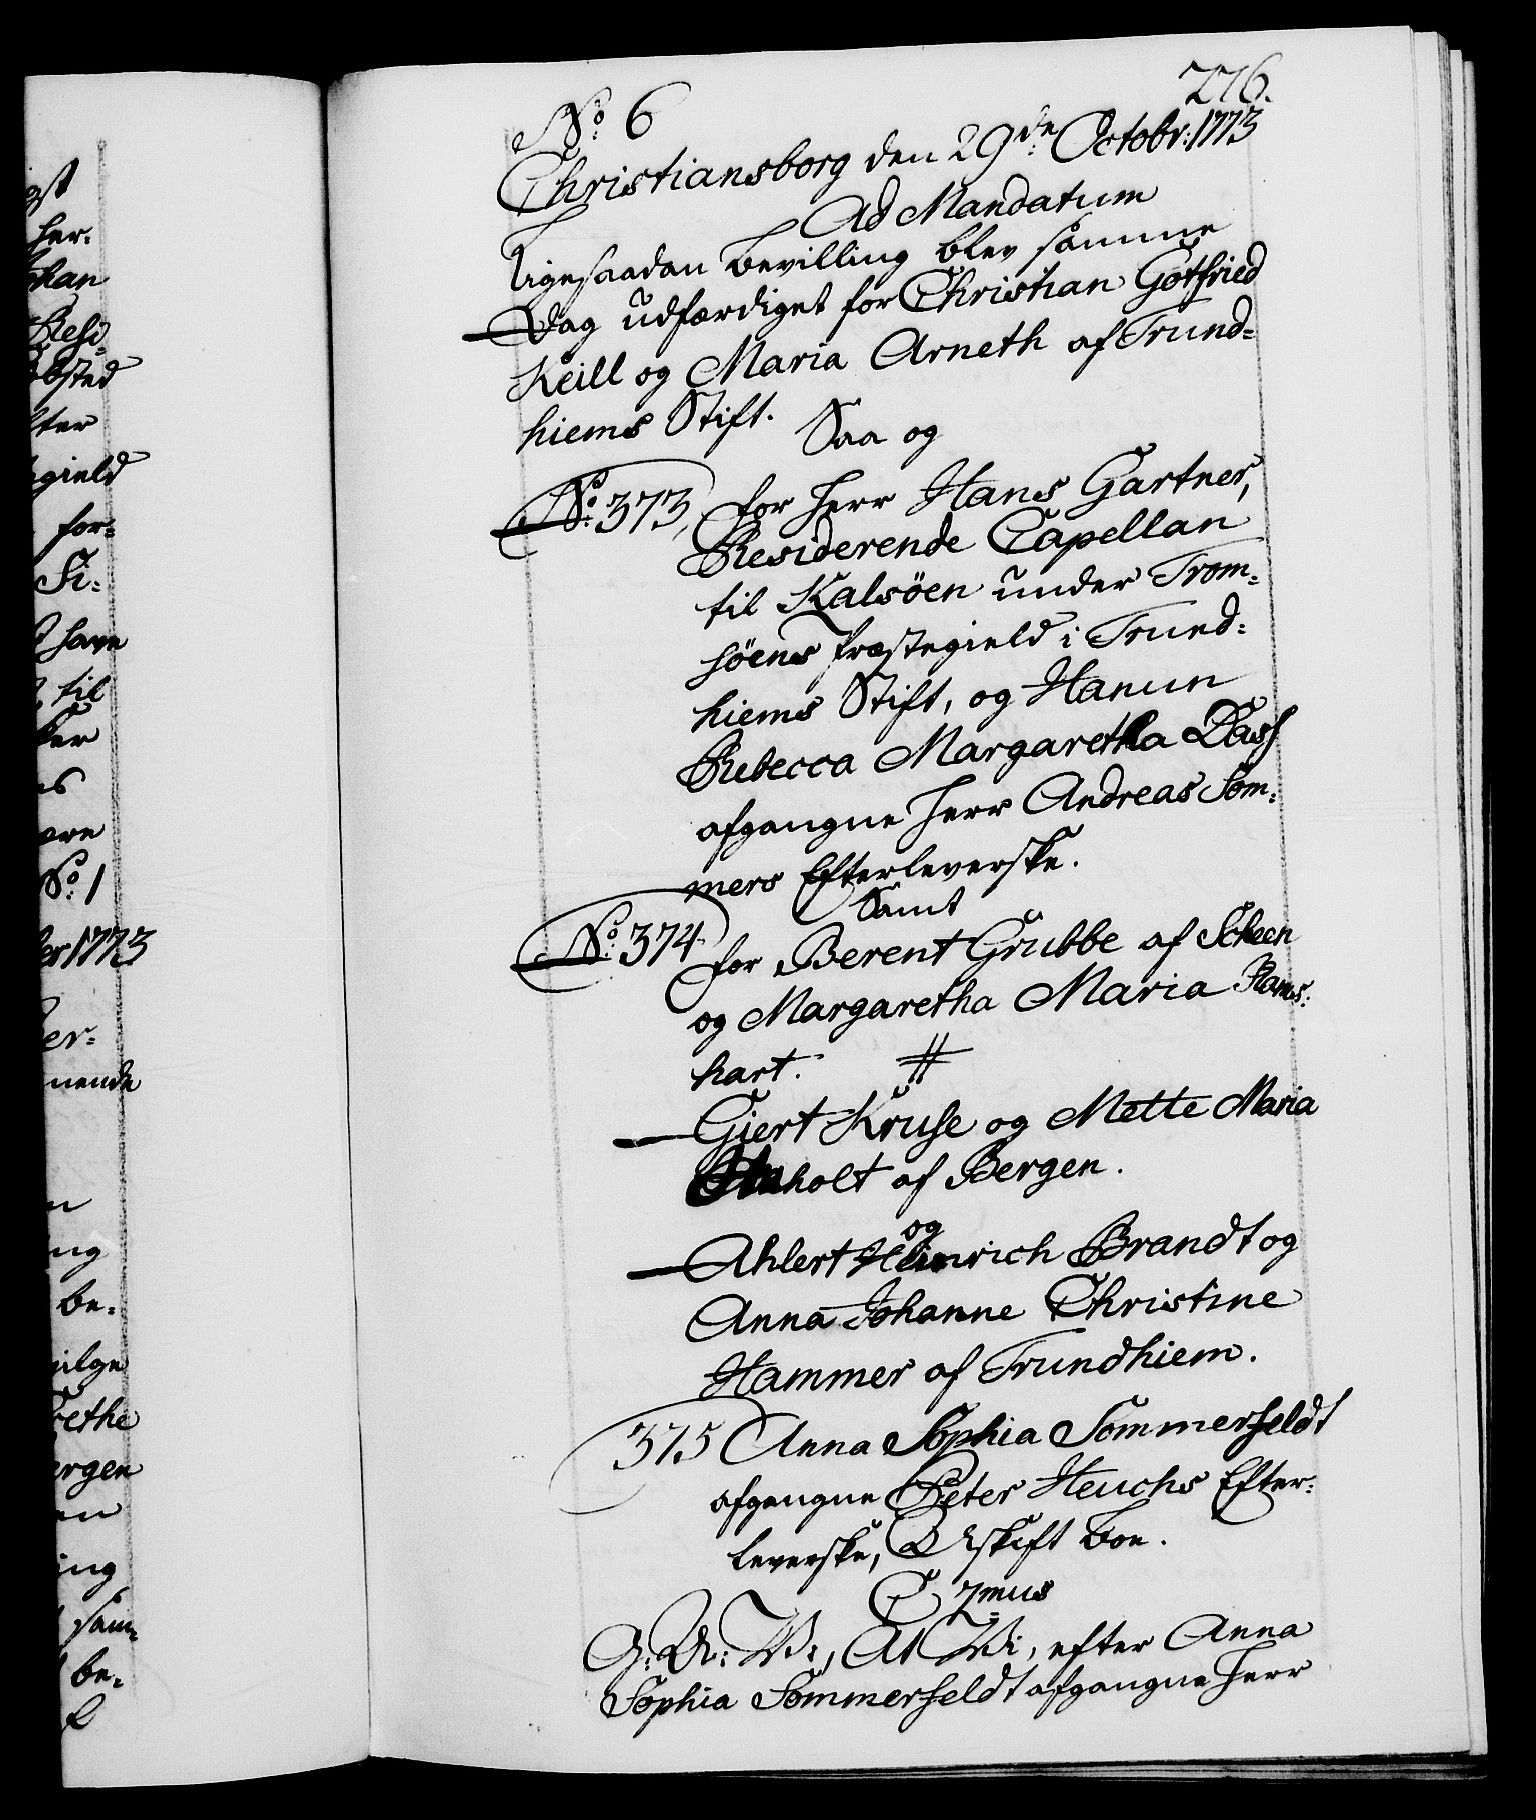 276.
No 6
Christiansborg den 29de Octobr: 1773
Ad Mandatum
Ligesaadan Bevilling blev samme
Dag udfærdiget for Christian Gotfried
Keill og Maria Arneth af Trund-
hiems Stift.
Saa og
No 373, for Herr Hans Gartner,
Residerende Capellan
til Kalsöen under Trom-
söens Præstegield i Trund-
hiems Stift, og Hanun
Rebecca Margaretha Dass
afgangne Herr Andreas Som-
mers Efterleverske.
Samt
No 374 for Berent Grubbe af Scheen
og Margaretha Maria
hart.
Giert Kruse og Mette Maria
holt af Bergen.
og
Ahlert Hinrich Brandt og
Anna Johanne Christine
Hammer af Trundhiem.
375 Anna Sophia Sommerfeldt
afgangne Peter Heuchs Efter-
leverske, Uskift Boe.
C 7mus
G: A: V:, At Vi, efter Anna
Sophia Sommerfeldt afgangne Herr
igst
Her-
ohan
Resi-
bsted
fter
gield
for-
Si-
have
til
ker
es
ære
No 1
ber 1773
er-
nende
n
ng
be-
vilge
rethe
ergen
en
ing
sam-
be-